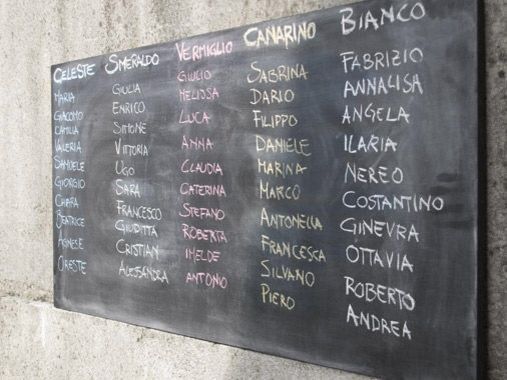 CELESTE SMERALDO VERMIGLIO CANARINO BIANCO
MARIA GIULIA GIULIO SABRINA FABRIZIO
GIACOMO ENRICO MELISSA DARIO ANNALISA
CAMILIA SIMONE LUCA FILIPPO ANGELA
VALERIA VITTORIA ANNA DANIELE ILARIA
SAMUELE UGO CLAUDIA MARINA NEREO
GIORGIO SARA CATERINA MARCO COSTANTINO
CHIARA FRANCESCO STEFANO ANTONELLA GINEVRA
BEATRICE GIUDITTA ROBERTA FRANCESCA OTTAVIA
AGNESE CRISTIAN IMELDE SILVANO ROBERTO
ORESTE ALESSANDRA ANTONIO PIERO ANDREA